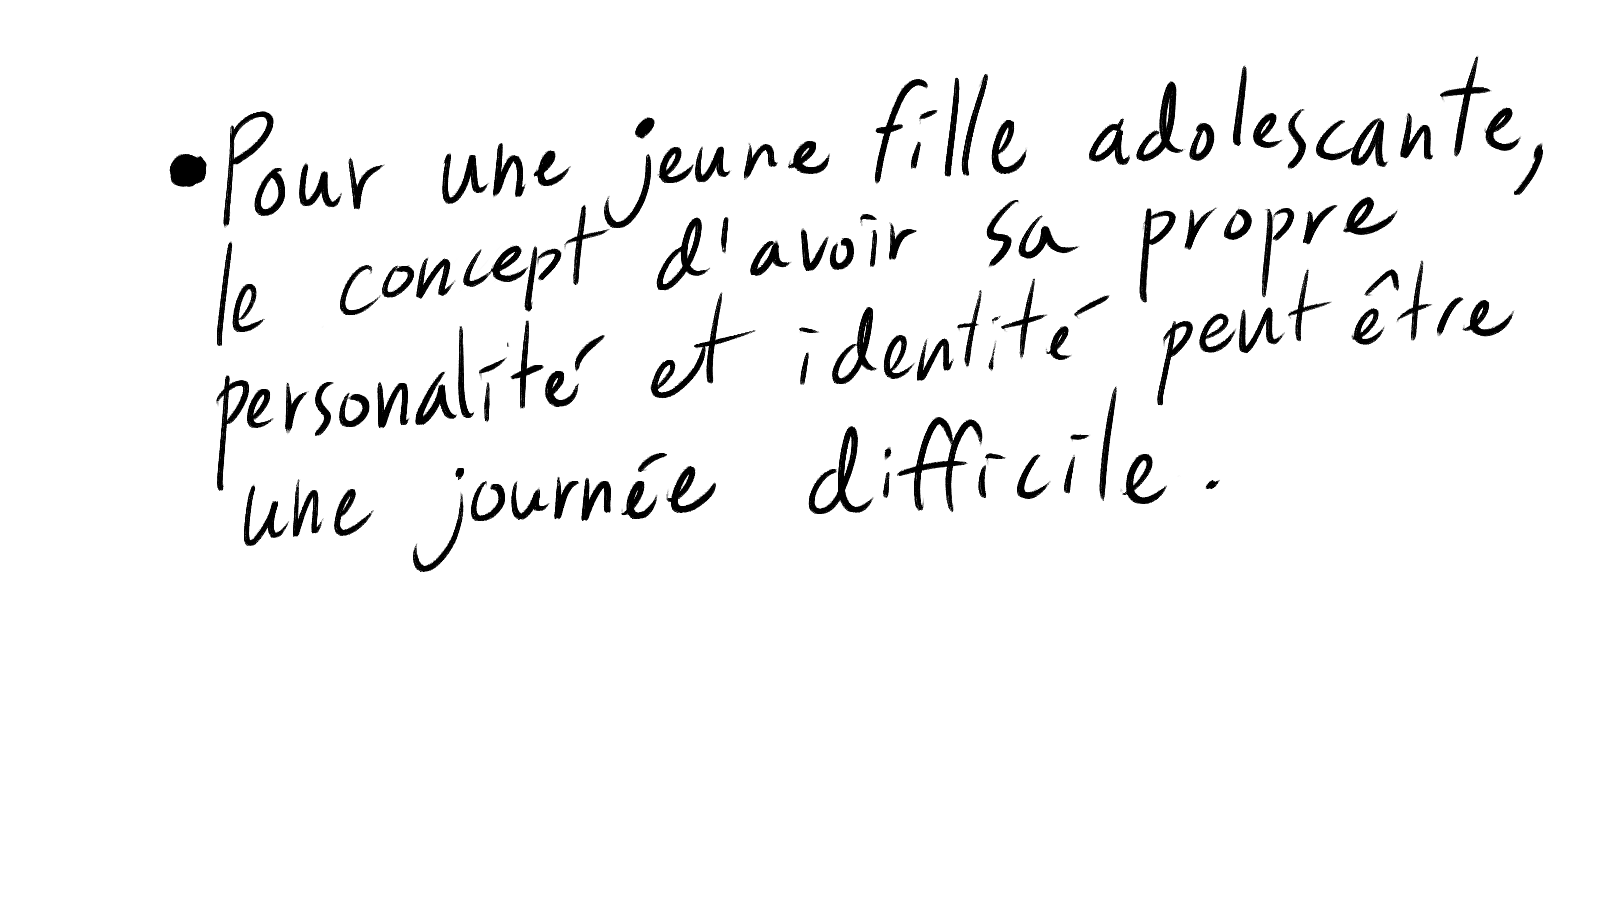 •Pour une jeune fille adolescante,
le concept d'avoir sa propre
personalité et identité peut être
une journée difficile.